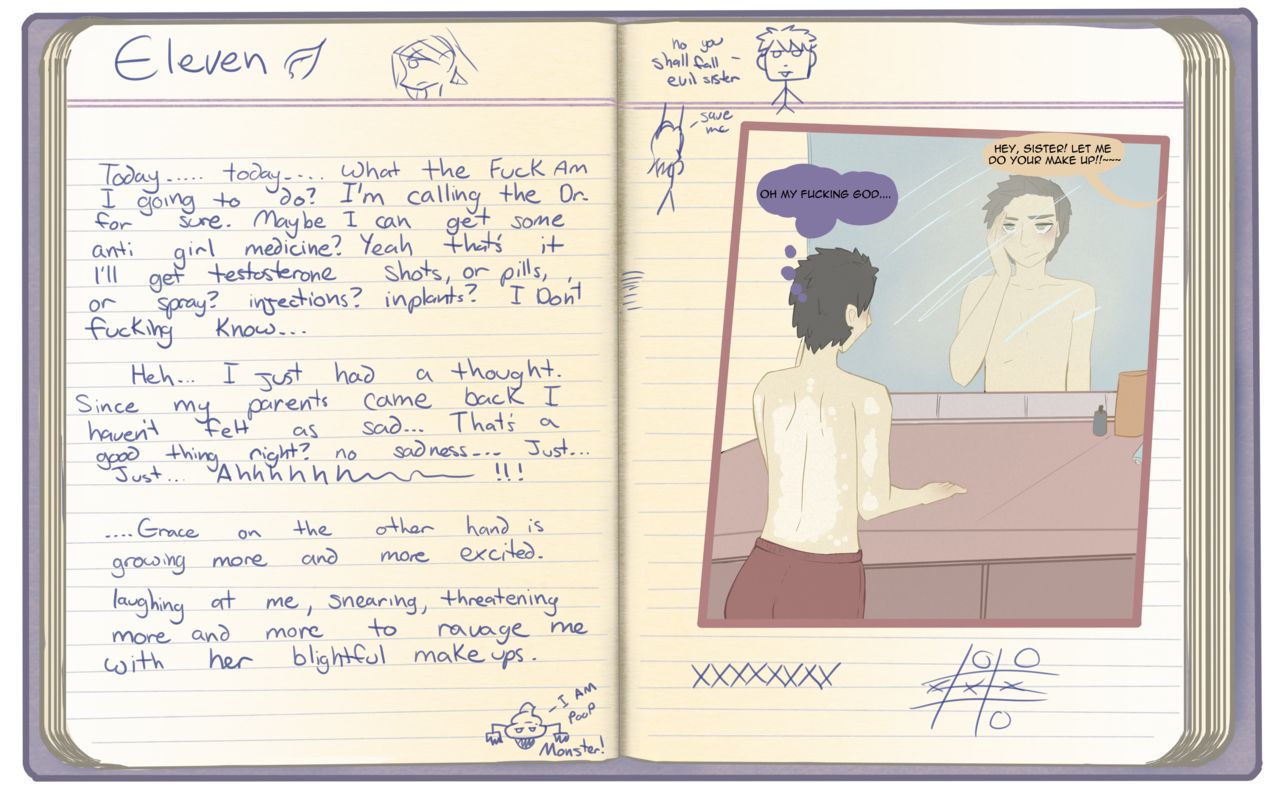 Eleven
Today..... today.... What the Fuck Am
I going to do? I'm calling the Dr.
for sure. Maybe I can get some
anti girl medicine? Yeah that's it
I'll get testosterone shots, or pills,
or spray? injections? inplants? I Don't
fucking know...
Heh... I just had a thought.
Since my parents came back I
haven't felt as sad... That's a
good thing right? no sadness... Just...
Just... Ahhhhhh !!!
....Grace on the other hand is
growing more and more excited.
laughing at me, snearing, threatening
more and more to ravage me
with her blightful make ups.
I AM
POOP
Monster!
no you
shall fall
evil sister
save
me
HEY, SISTER! LET ME
DO YOUR MAKE UP!!~~~
OH MY FUCKING GOD....
XXXXXXXX
O O
X X X
O